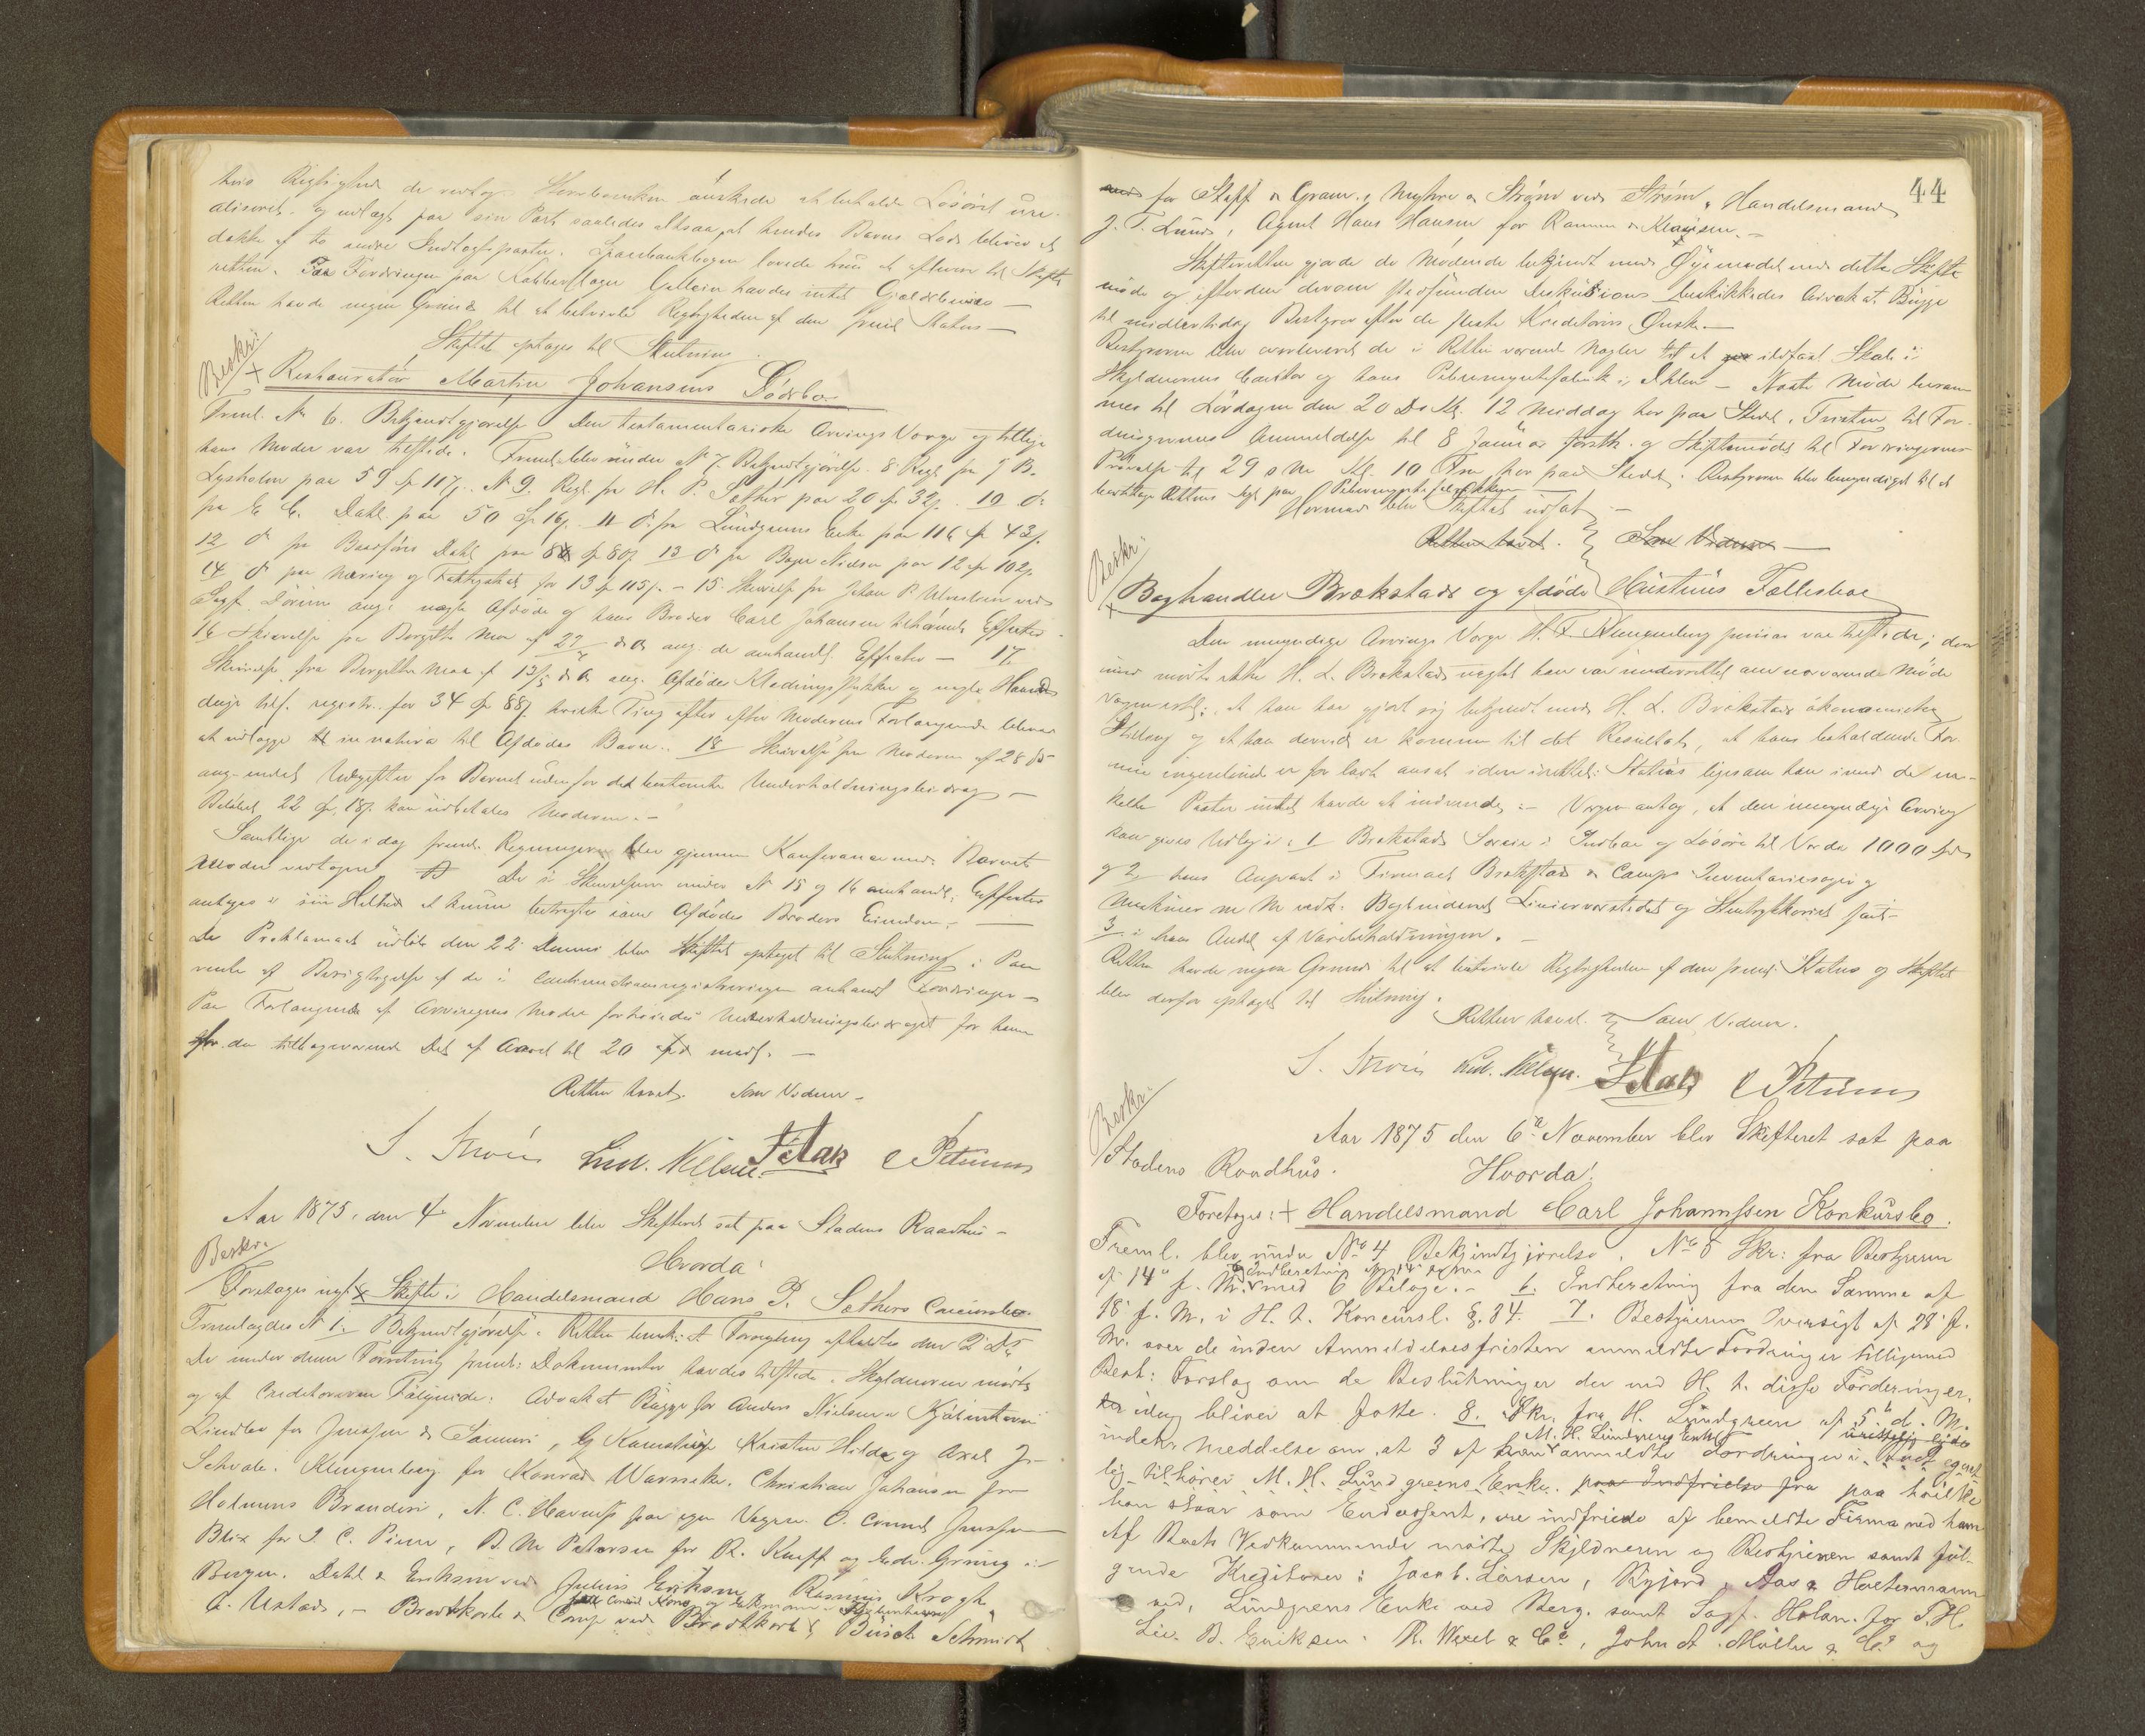 hvis Rigtighed de vedtog. Stervboenken ønskede at beholde Løsøret ure-
aliseret og udlagt paa sin Part saaledes altsaa at hendes Barns Lod bliver at
dække af to andre Indtægtsposter. Sparebankbogen lovede hun at aflevere til Skifte
retten. For Fordringen paa Kobberslager Gallein havdes intet Gjældsbevis –
Retten havde ingen Grund til at betvivle Rigtigheden af den freml. Status –
Skiftet optages til Slutning.
Beskr:
Restauratør Martin Johansens Dødsbo
Freml. No 6. Bekjendtgjørelse. Den testamentariske Arvings Værge og tillige
hans Moder var tilstede. Freml. blev under No 7. Bekjendtgjørelse. 8 Regl. fra J B.
Lysholm paa 59 Sp 117 s. No 9. Regl. fra H. P. Sæther paa 20 Sp 32 s. 10 do
fra E. C. Dahl paa 50 Sp 16 s. 11 do fra Lundgreens Enke paa 116 Sp 43 s.
12 do fra Baarføres Dahl paa 8 Sp 80 s 13 do fra Bager Nielsen paa 12 Sp 102 s.
14 do fra Næring og Fattigskat for 13 Sp 115 s. – 15. Skrivelse fra Johan P. Ulvestein ved
Sagf. Dørum ang. nogle Afdøde og hans Broder Carl Johansen tilhørende Effecter.
16 Skrivelse fra Bergithe Moe af 27 ds A ang. de omhandl. Effecter – 17
Skrivelse fra Bergithe Moe af 13/5 ds A. ang. Afdødes Klædningsstykker og nogle Haand
duge tils. registr. for 34 Sp 88 s. hvilke Ting efter Moderens Forlangende bliver
at udlægge in natura til Afdødes Barn. 18 Skrivelse fra Moderen af 28 ds
ang. endel Udgifter for Barnet udenfor det bestemte Underholdningsbidrag –
Beløbet 22 Sp. 18 s. kan udbetales Moderen. –
Samtlige de i dag freml. Regninger blev gjennem Konference med Barnets
Moder vedtagne De i Skrivelserne under No 15 og 16 omhandl. Effecter
antages i sin Helhed at kunne betragtes som Afdødes Broders Eiendom. –
Da Proklamaet udløb den 22 dennes blev Skiftet optaget til Slutning i Paa
vente af Berigtigelse af de i Continuationsregistreringen anhandl. Fordringer –
Paa Forlangende af Arvingens Moder forhøiedes Underholdningsbidraget for ham
for den tilbageværende Del af Aaret til 20 Spd maal. –
Retten hævet. Som Vidner –
S. Thoüs Lud. Nilsen. F. Aas C Petersen
Aar 1875. den 4 November blev Skifteret sat paa Stadens Raadhus –
Beskr:
Hvorda:
Foretages nyt Skifte i Handelsmand Hans P. Sæthers Concursbo.
Fremlagdes No 1. Bekjendtgjørelse. Retten bemk. at Forsegling afholdtes den 2 Ds.
De under denne Forretning freml. Dokumenter havdes tilstede. Skyldneren mødte
og af Creditorerne Følgende: Advokat Bügge for Anders Nielsen
Lindbo for Jenssen & Sommer, G Kamstrup Kristen Hilde og Axel J-
Schvabe. Klingenberg for Konrad Warneke. Christian Johansen for
Holmens Brænderi, N. C. Havnes paa egne Vegne. O. Conrad Jenssen
Blix for J. C. Piene, B. M Petersen for R. Knoff og Gebr. Grung i
Bergen. Dahl & Eriksen ved Julius Eriksen Rasmus Krogh,
A. Ustad, – Brodtkorb & Comp ved Brodtkorb, Busch Schmidt
44
for Stapf & Gram. Myhre & Strøm ved Strøm, Handelsmand
J. T. Lund, Agent Hans Hansen for Ramm & Klausen. –
Skifteretten gjorde de Mødende bekjendt med Øiemedet med dette Skifte
møde og efterden derom stedfunden Diskussion beskikkedes Advokat Bügge
til midlertidig Bestyrer efter de fleste Kreditorers Ønske. –
Bestyreren blev overleveret de i Retten værende Nøgler til et ildfast Skab i
Skyldnerens Contor og hans Pebermyntefabrik i Ihlen – Næste Møde beram
mes til Lørdagen den 20 Ds Kl. 12 Middag her paa Stedet. Fristen til For-
dringernes Anmeldelse til 8 Januar førstk. og Skiftemødet til Fordringernes
Prøvelse til 29 s M Kl. 10 Frm her paa Stedet. Bestyreren blev bemyndiget til at
Hermed blev Skiftet udsat –
Retten hævet. Som Vidner –
Beskr:
Boghandler Brækstads og afdøde Hustrus Fællesboe
Den umyndige Arvings Værge H. F. Klingenberg junior var tilstede; der
imod mødte ikke H. L. Brækstad uagtet han var underrettet om nærværende Møde
Værgen erkl. at han har gjort sig bekjendt med H. L. Brækstads økonomiske
Stilling og at han derved er kommen til det Resultat, at hans beholdende For-
mue ingenlunde er for lavt ansat i den indk. Status ligesom han imod de en-
kelte Poster intet havde at indvende. – Værgen antog, at den umyndige Arving
kan gives Udlæg i: 1 Brækstads Sorein i Indbo og Løsøre til Værdi 1000 Spd
og 2 hans Anpart i Firmaet Brækstad & Camps Inventariesager og
Maskiner m M vedk. Bogbinderiet Linieværkstedet og Stentrykkeriet samt
3 i hans Andel af Varebeholdningen. –
Retten havde ingen Grund til at betvivle Rigtigheden af den freml. Status og Skiftet
blev derfor optaget til Slutning.
Retten hævet. Som Vidner.
S. Thoüs Lud. Nilsen. F. Aas C Petersen
Beskr:
Aar 1875 den 6te November blev Skifteret sat paa
Stadens Raadhus.
Hvorda:
Foretoges: Handelsmand Carl Johannssen Konkursbo.
Freml. blev under No 4 Bekjendtgjørelse. No 5 Skr: fra Bestyreren
af 14de f. M. med 6 Bilage. – 6. Indberetning fra den Samme af
18 f. M. i H. t. Koncursl. §. 34. 7. Bestyrerens Oversigt af 28 f.
M. over de inden Anmeldelsesfristen anmeldte Fordringer tilligemed
Best: Forslag om de Beslutninger der med H. t. disse Fordringer.
idag bliver at fatte. 8. Skr. fra H. Lundgreen af 5te d. M.
M. H. Lundgreens Enke
indeh. Meddelse om, at 3 af anmeldte Fordringer i Boet egent
lig tilhører M. H. Lundgreens Enke. paa Indfrielse fra paa hvilke
han staar som Endossent, ere indfriede af bemeldte Firma ved ham
Af Boets Vedkommende mødte Skyldneren og Bestyreren samt føl-
gende Kreditorer: Jacob. Larsen, Kyjord, Aas & Haltermann
ved, Lundgreens Enke ved Berg. samt Sagf. Holan. for T. H.
Lie. B. Eriksen. R. Wexel & Co, John A. Møller & Co og